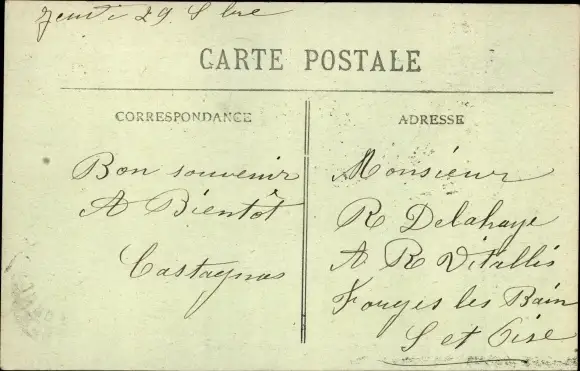 Jeudi 29 S bre
CARTE POSTALE
CORRESPONDANCE
ADRESSE
Bon souvenir
A Bientôt
Castagnas
Monsieur
R Delahaye
A R Vitallis
Forges les Bain
S et Oise